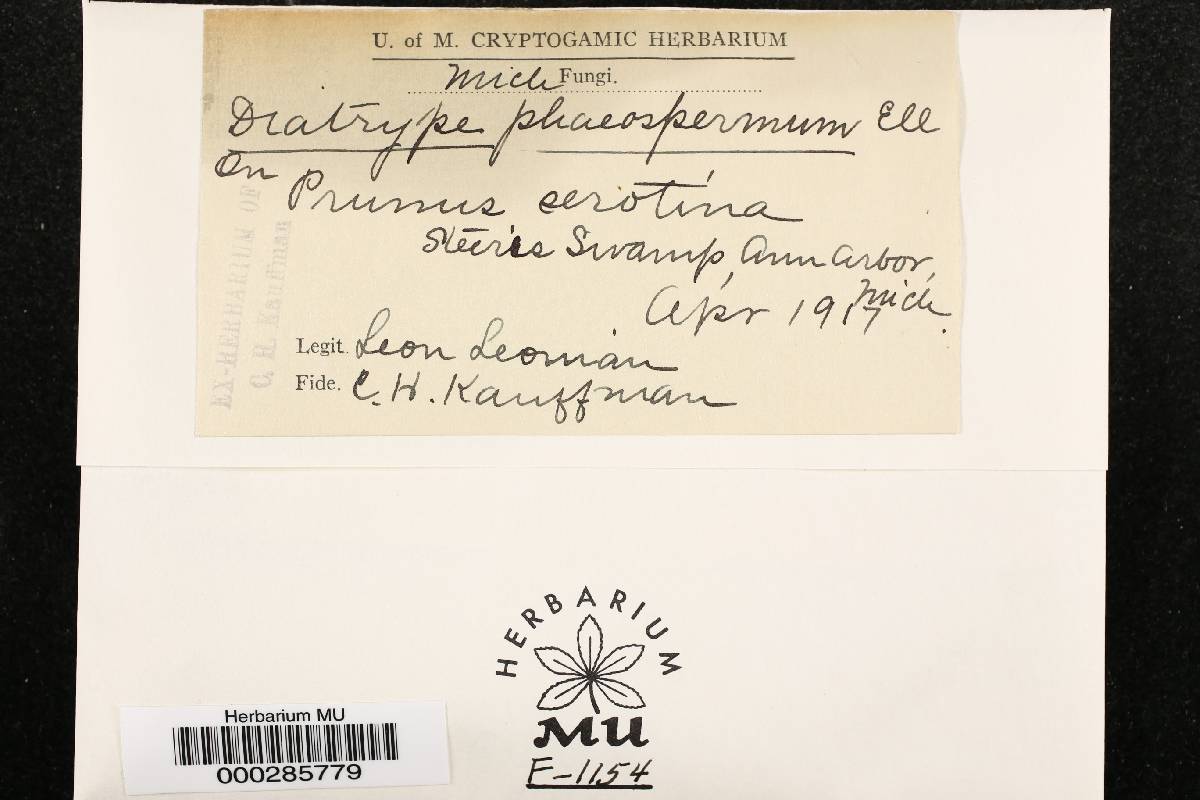 U. of M. CRYPTOGAMIC HERBARIUM
Mich Fungi.
Diatrype phaeospermum Ell
On
Prunus serotina
Steeres Swamp, Ann Arbor,
Mich.
Apr 1917
Legit. Leon Leonian
Fide. C. H. Kauffman
EX-HERBARIUM OF
C. H. Kauffman
HERBARIUM
MU
F-1154
Herbarium MU
000285779